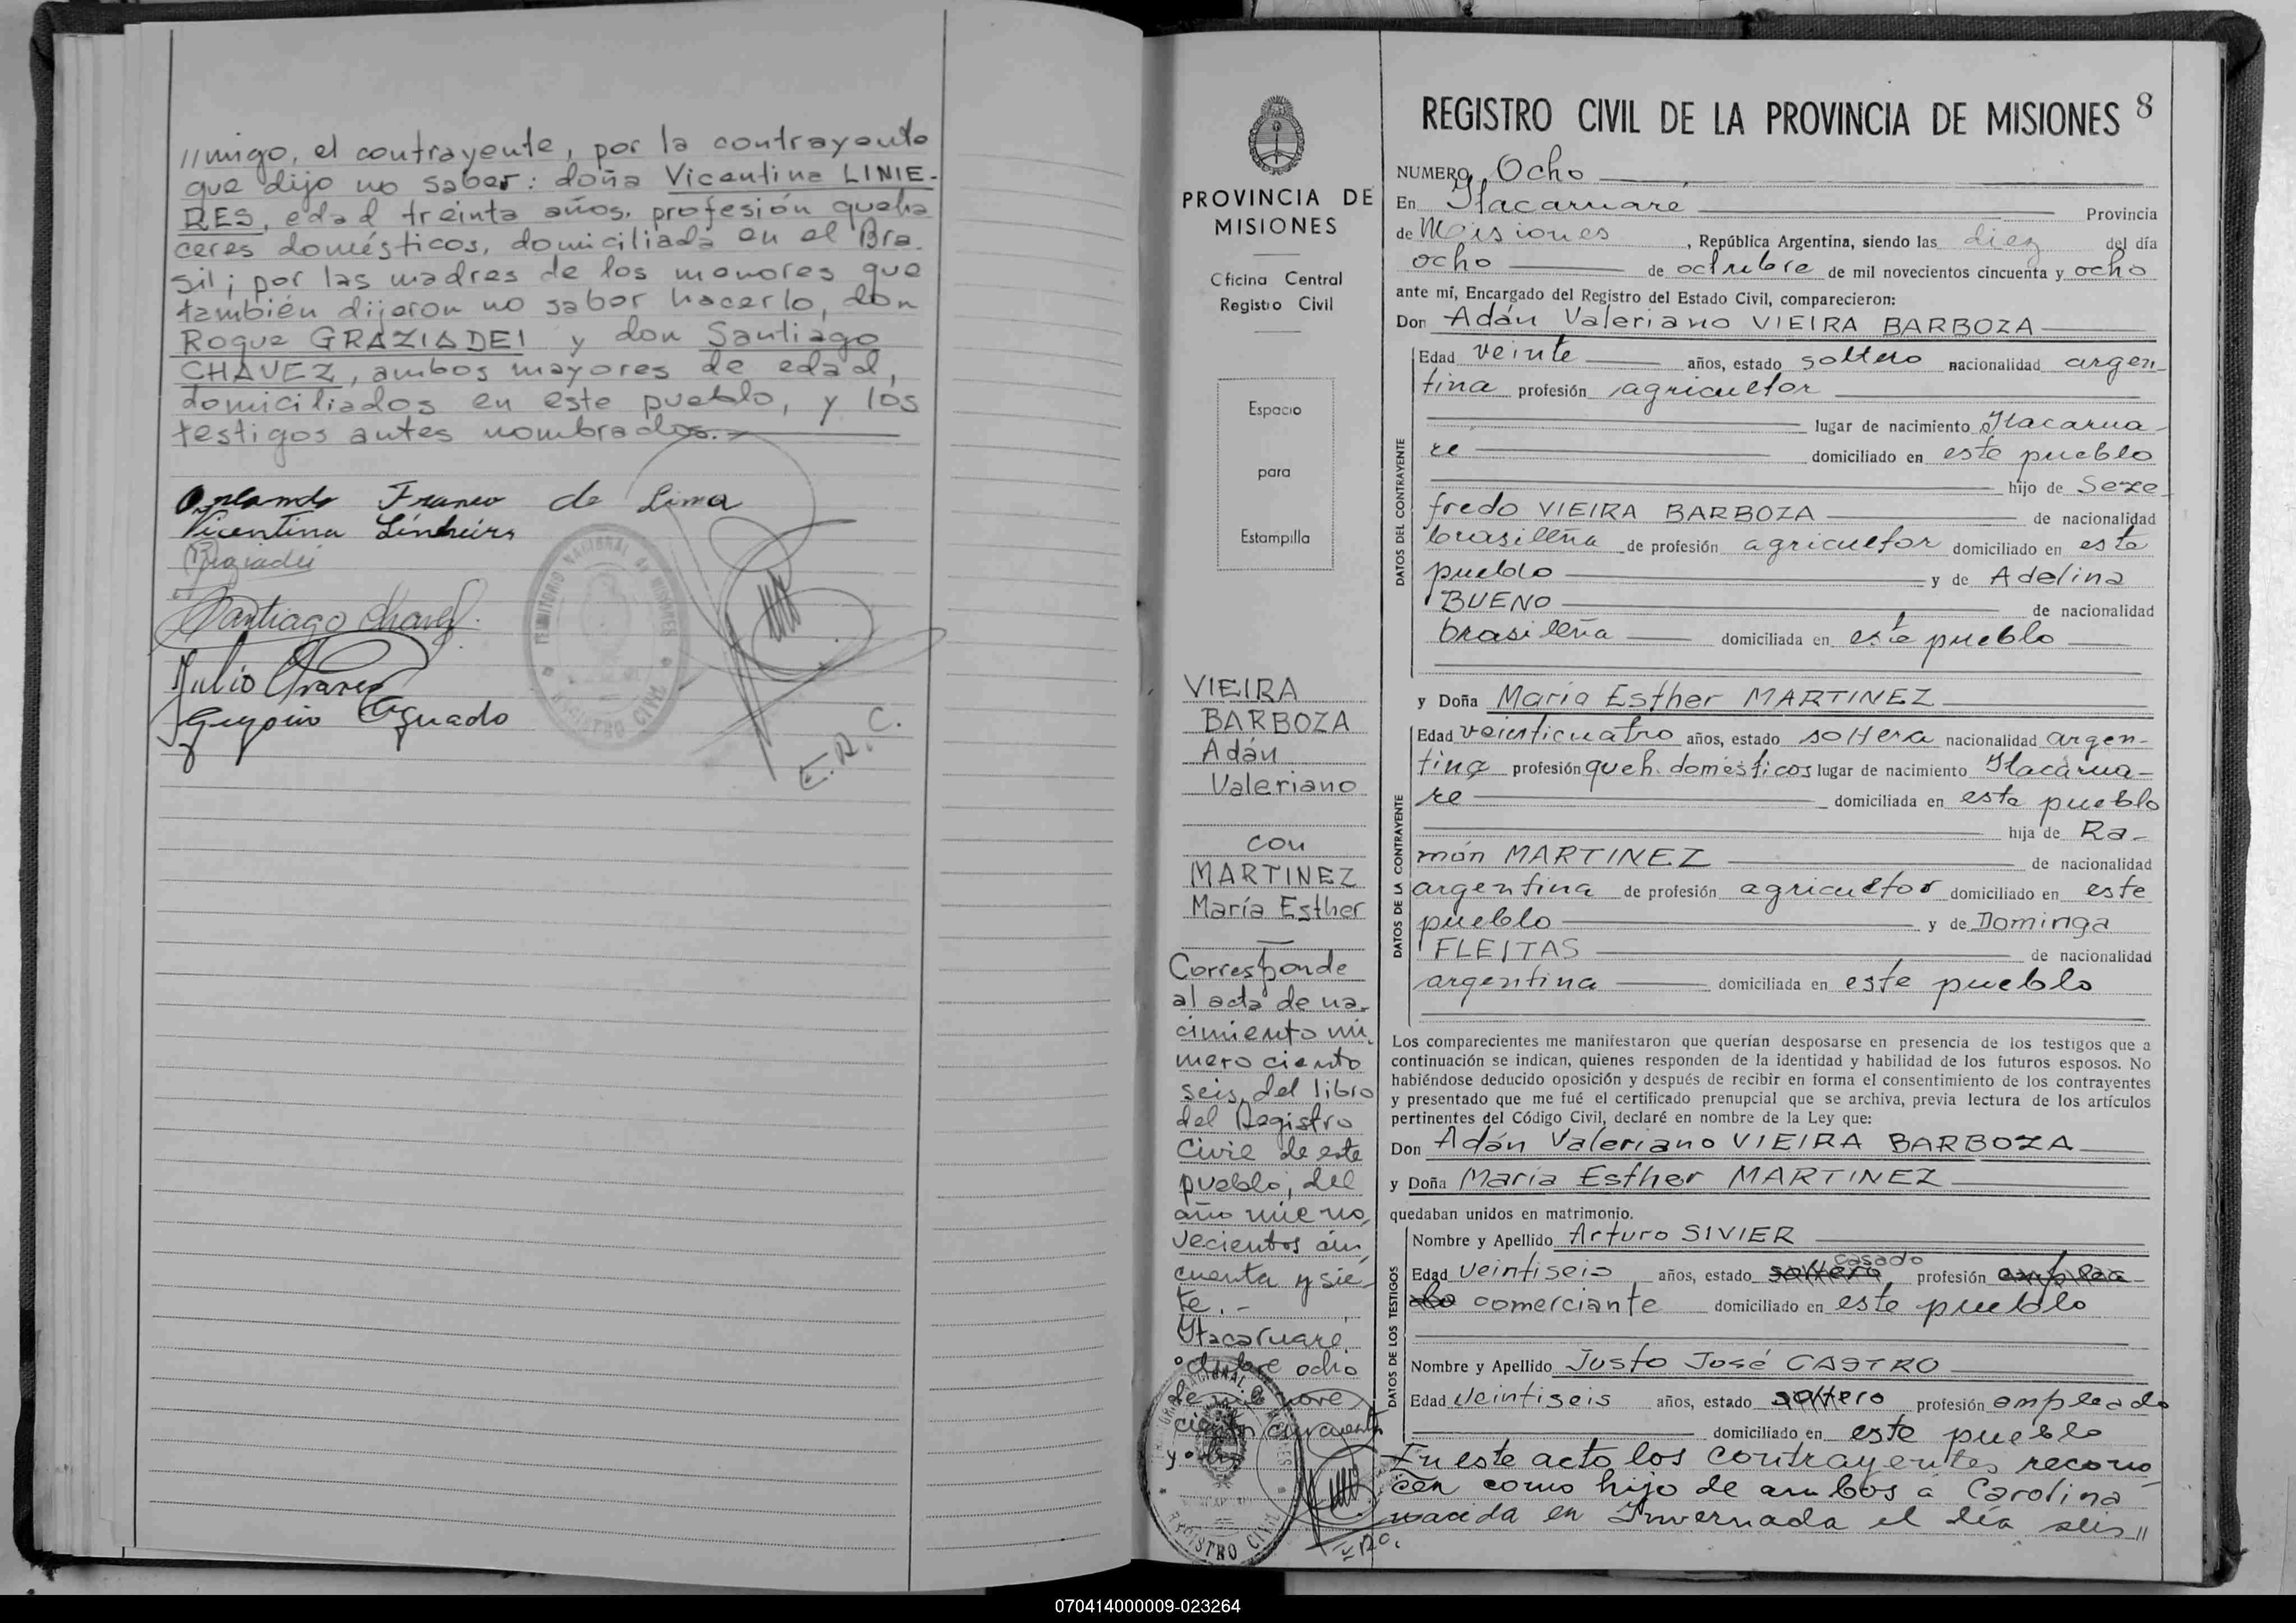 //migo, el contrayente, por la contrayente
que dijo no saber: doña Vicentina LINIE-
RES, edad treinta años, profesión queha
ceres domésticos, domiciliada en el Bra-
sil; por las madres de los menores que
también dijeron no saber hacerlo, don
Roque GRAZIADEI y don Santiago
CHAVEZ, ambos mayores de edad,
domiciliados en este pueblo, y los
testigos antes nombrados.-
Orlando Franco de Lima
Vicentina
Santiago Chavez
Julio
Gregorio Aguado
TERRITORIO NACIONAL DE MISIONES
REGISTRO CIVIL
E.R.C.
PROVINCIA DE
MISIONES
Oficina Central
Registro Civil
Espacio
para
Estampilla
VIEIRA
BARBOZA
Adán
Valeriano
con
MARTINEZ
María Esther
Corresponde
al acta de na-
cimiento nú-
mero ciento
seis, del libro
del Registro
Civil de este
pueblo, del
año mil no,
vecientos cin,
cuenta y sie-
te.-
Itacaruaré,
octubre ocho
de mil nove,
cientos cincuenta
y ocho
REGISTRO CIVIL
E.R.C.
REGISTRO CIVIL DE LA PROVINCIA DE MISIONES 8
NUMERO Ocho
En Itacaruaré Provincia
de Misiones, República Argentina, siendo las diez del día
ocho de octubre de mil novecientos cincuenta y ocho
ante mí, Encargado del Registro del Estado Civil, comparecieron:
Don Adán Valeriano VIEIRA BARBOZA
DATOS DEL CONTRAYENTE
Edad veinte años, estado soltero nacionalidad argen-
tina profesión agricultor
lugar de nacimiento Itacarua-
re domiciliado en este pueblo
hijo de Seze-
fredo VIEIRA BARBOZA de nacionalidad
brasileña de profesión agricultor domiciliado en este
pueblo y de Adelina
BUENO de nacionalidad
brasileña domiciliada en este pueblo
y Doña María Esther MARTINEZ
DATOS DE LA CONTRAYENTE
Edad veinticuatro años, estado soltera nacionalidad argen-
tina profesión queh. domésticos lugar de nacimiento Itacarua-
re domiciliada en este pueblo
hija de Ra-
món MARTINEZ de nacionalidad
argentina de profesión agricultor domiciliado en este
pueblo y de Dominga
FLEITAS de nacionalidad
argentina domiciliada en este pueblo
Los comparecientes me manifestaron que querían desposarse en presencia de los testigos que a
continuación se indican, quienes responden de la identidad y habilidad de los futuros esposos. No
habiéndose deducido oposición y después de recibir en forma el consentimiento de los contrayentes
y presentado que me fué el certificado prenupcial que se archiva, previa lectura de los artículos
pertinentes del Código Civil, declaré en nombre de la Ley que:
Don Adán Valeriano VIEIRA BARBOZA
y Doña María Esther MARTINEZ
quedaban unidos en matrimonio.
DATOS DE LOS TESTIGOS
Nombre y Apellido Arturo SIVIER
casado
Edad veintiseis años, estado soltero profesión emplea
do comerciante domiciliado en este pueblo
Nombre y Apellido Justo José CASTRO
Edad veintiseis años, estado soltero profesión empleado
domiciliado en este pueblo
En este acto los contrayentes recono-
cen como hijo de ambos a Carolina
nacida en Invernada el día seis//
070414000009-023264